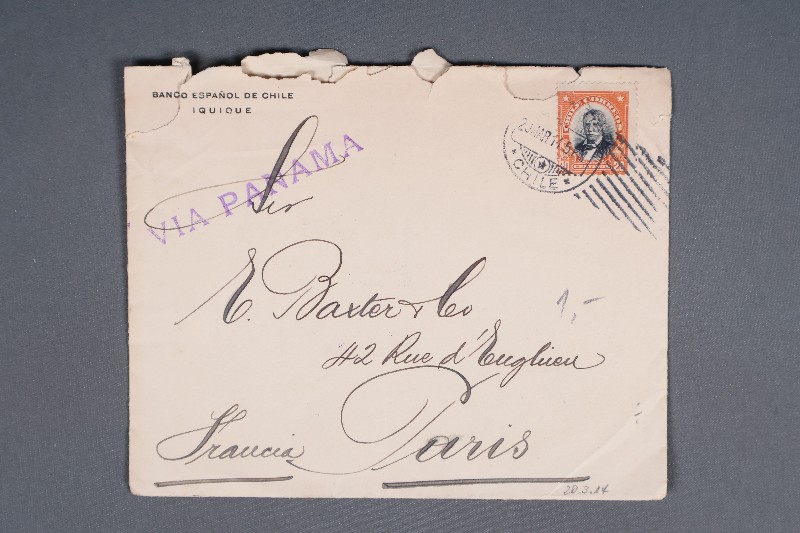 BANCO ESPAÑOL DE CHILE
IQUIQUE
VIA PANAMA
CHILE
Sir
E. Baxter & Co
1,-
42 Rue d'Enghien
Francia Paris
20.3.14